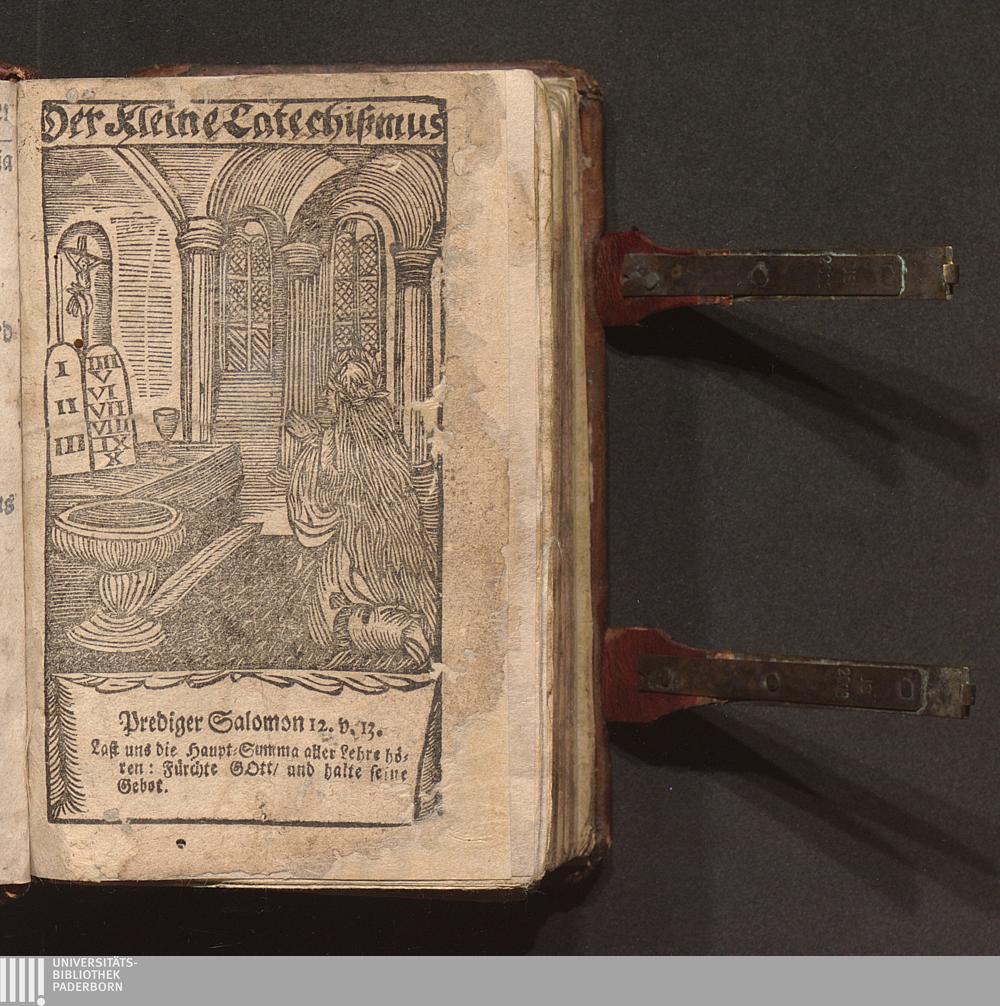 Der Kleine Catechißmus
I
II
III
IIII
V
VI
VII
VIII
IX
X
Prediger Salomon 12. v. 13.
Laßt uns die Haupt-Summa aller Lehre hö-
ren: Fürchte GOtt/ und halte seine
Gebot.
UNIVERSITÄTS-
BIBLIOTHEK
PADERBORN